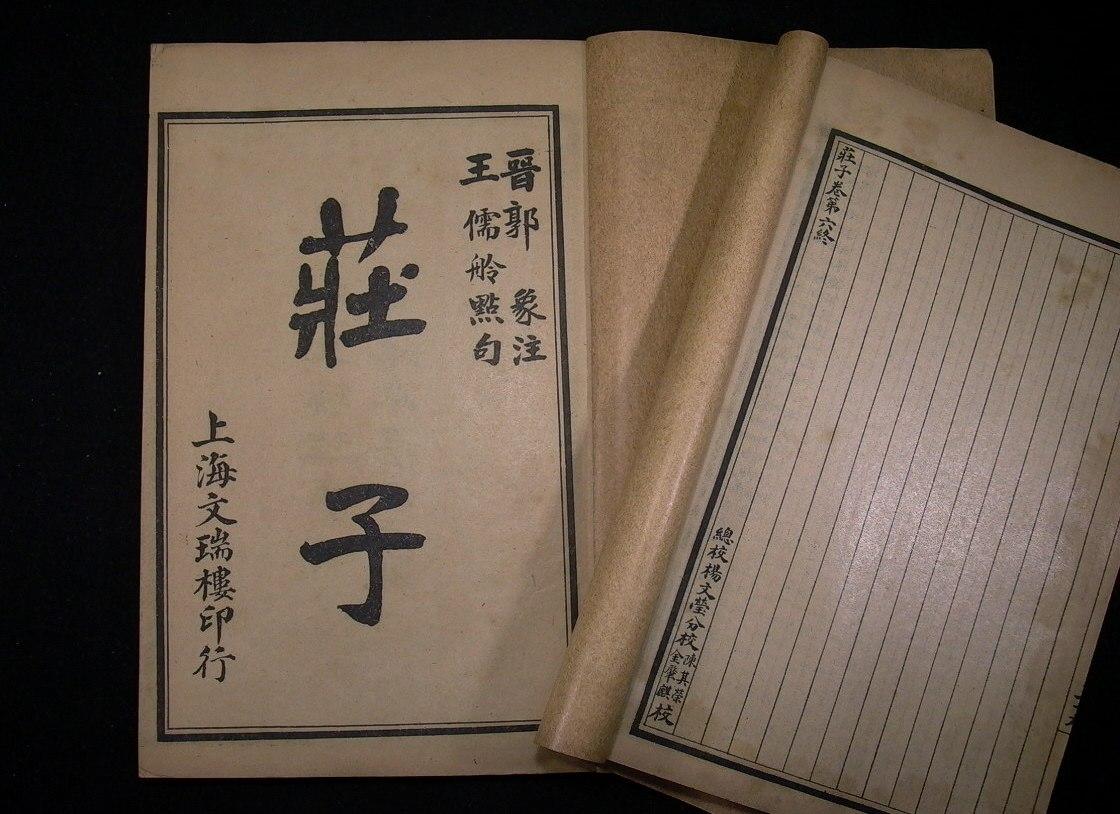 晋郭象注
王儒舲點句
莊子
上海文瑞樓印行
莊子卷第六終
總校楊文瑩分校
陳其榮
全肇麒
校